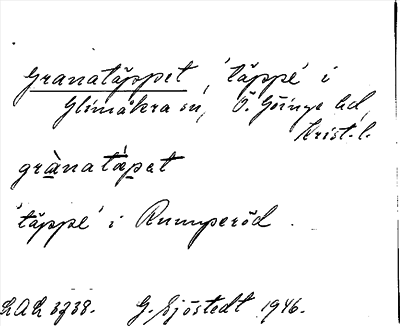 Granatäppet, 'täppe' i
Glimåkra sn, Ö. Göinge hd,
Krist. l.
grànatǽpet
'täppe' i Rumperöd.
LAL 3738. G. Sjöstedt 1946.